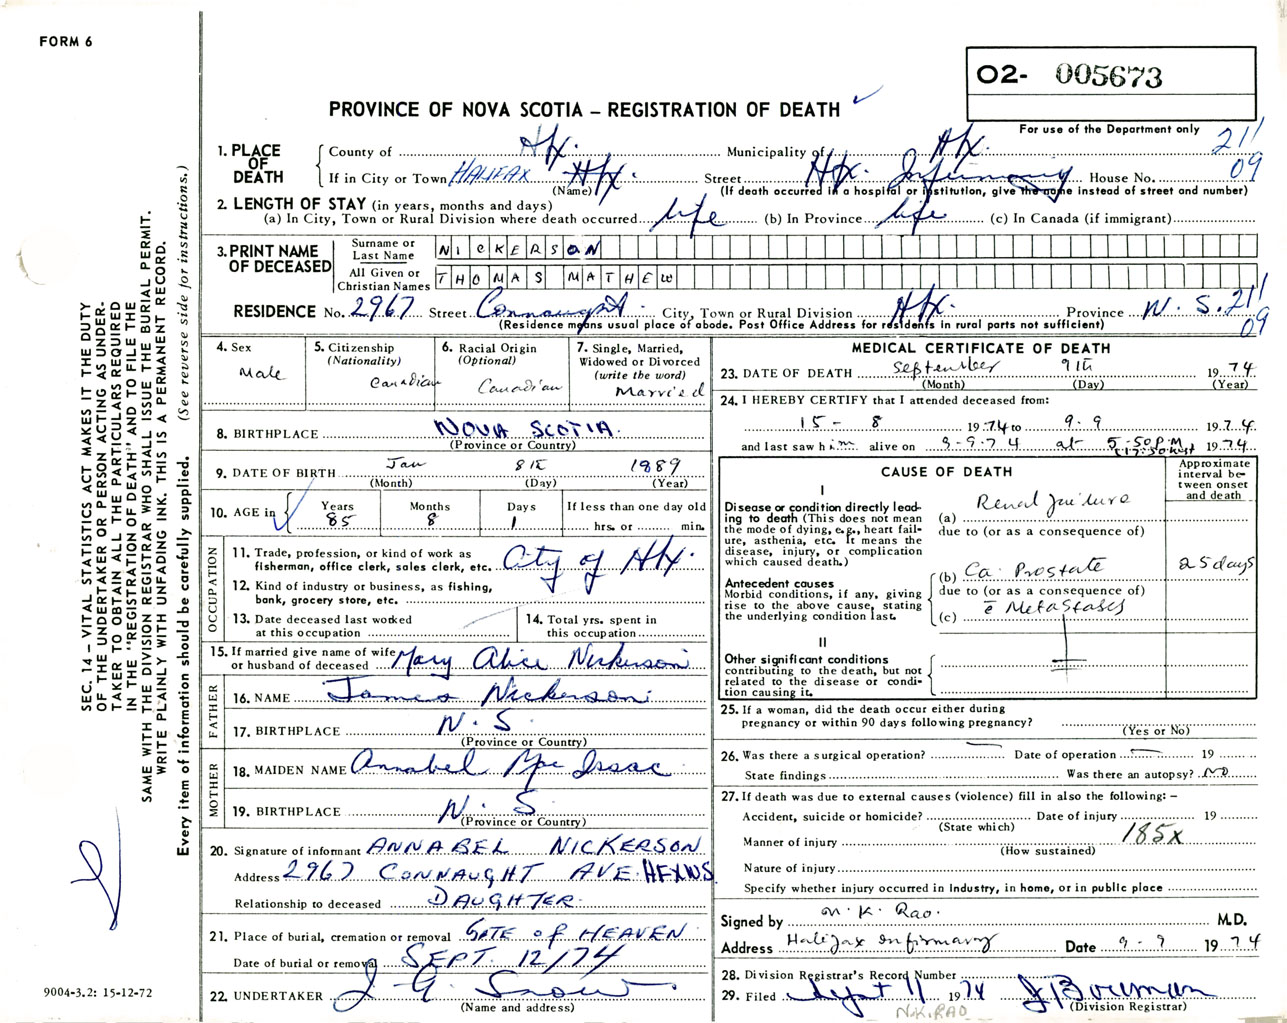 FORM 6
O2- 005673
PROVINCE OF NOVA SCOTIA – REGISTRATION OF DEATH ✓
For use of the Department only
211
09
1. PLACE OF DEATH
County of Hfx. Municipality of Hfx.
If in City or Town HALIFAX Hfx. Street Hfx. Infirmary House No.
(Name) (If death occurred in a hospital or institution, give the name instead of street and number)
2. LENGTH OF STAY (in years, months and days)
(a) In City, Town or Rural Division where death occurred life (b) In Province life (c) In Canada (if immigrant)
3. PRINT NAME OF DECEASED
Surname or Last Name NICKERSON
All Given or Christian Names THOMAS MATHEW
RESIDENCE No. 2967 Street Connaught City, Town or Rural Division Hfx. Province N.S. 211
09
(Residence means usual place of abode. Post Office Address for residents in rural parts not sufficient)
4. Sex
Male
5. Citizenship
(Nationality)
Canadian
6. Racial Origin
(Optional)
Canadian
7. Single, Married, Widowed or Divorced
(write the word)
Married
8. BIRTHPLACE NOVA SCOTIA.
(Province or Country)
9. DATE OF BIRTH Jan 8th 1889
(Month) (Day) (Year)
10. AGE in
Years Months Days If less than one day old
85 8 1 hrs. or min.
OCCUPATION
11. Trade, profession, or kind of work as
fisherman, office clerk, sales clerk, etc. City of Hfx.
12. Kind of industry or business, as fishing,
bank, grocery store, etc.
13. Date deceased last worked
at this occupation
14. Total yrs. spent in
this occupation
15. If married give name of wife
or husband of deceased Mary Alice Nickerson
FATHER
16. NAME James Nickerson
17. BIRTHPLACE N.S.
(Province or Country)
MOTHER
18. MAIDEN NAME Annabel Mc Issac
19. BIRTHPLACE N.S.
(Province or Country)
20. Signature of informant ANNABEL NICKERSON
Address 2967 CONNAUGHT AVE. HFX NS
Relationship to deceased DAUGHTER.
21. Place of burial, cremation or removal GATE OF HEAVEN
Date of burial or removal SEPT. 12/74
22. UNDERTAKER J A Snow
(Name and address)
MEDICAL CERTIFICATE OF DEATH
23. DATE OF DEATH September 9th 1974
(Month) (Day) (Year)
24. I HEREBY CERTIFY that I attended deceased from:
15 - 8 1974 to 9.9 1974
and last saw him alive on 9-9-74 at 5.50PM 1974
CAUSE OF DEATH
Approximate interval between onset and death
I
Disease or condition directly lead-
ing to death (This does not mean
the mode of dying, e.g., heart fail-
ure, asthenia, etc. It means the
disease, injury, or complication
which caused death.)
(a) Renal failure
due to (or as a consequence of)
Antecedent causes
Morbid conditions, if any, giving
rise to the above cause, stating
the underlying condition last.
(b) Ca. Prostate 25 days
due to (or as a consequence of)
(c) c̄ Metastases
II
Other significant conditions
contributing to the death, but not
related to the disease or condi-
tion causing it.
25. If a woman, did the death occur either during
pregnancy or within 90 days following pregnancy?
(Yes or No)
26. Was there a surgical operation? — Date of operation — 19
State findings Was there an autopsy? NO
27. If death was due to external causes (violence) fill in also the following: –
Accident, suicide or homicide? Date of injury 19
(State which)
Manner of injury 185X
(How sustained)
Nature of injury
Specify whether injury occurred in Industry, in home, or in public place
Signed by N. K. Rao. M.D.
Address Halifax Infirmary Date 9-9 1974
28. Division Registrar's Record Number
29. Filed Sept 11 1974 J Bowman
(Division Registrar)
N.K. RAO
SEC. 14 – VITAL STATISTICS ACT MAKES IT THE DUTY
OF THE UNDERTAKER OR PERSON ACTING AS UNDER-
TAKER TO OBTAIN ALL THE PARTICULARS REQUIRED
IN THE "REGISTRATION OF DEATH" AND TO FILE THE
SAME WITH THE DIVISION REGISTRAR WHO SHALL ISSUE THE BURIAL PERMIT.
WRITE PLAINLY WITH UNFADING INK. THIS IS A PERMANENT RECORD.
Every item of information should be carefully supplied. (See reverse side for instructions.)
9004-3.2: 15-12-72